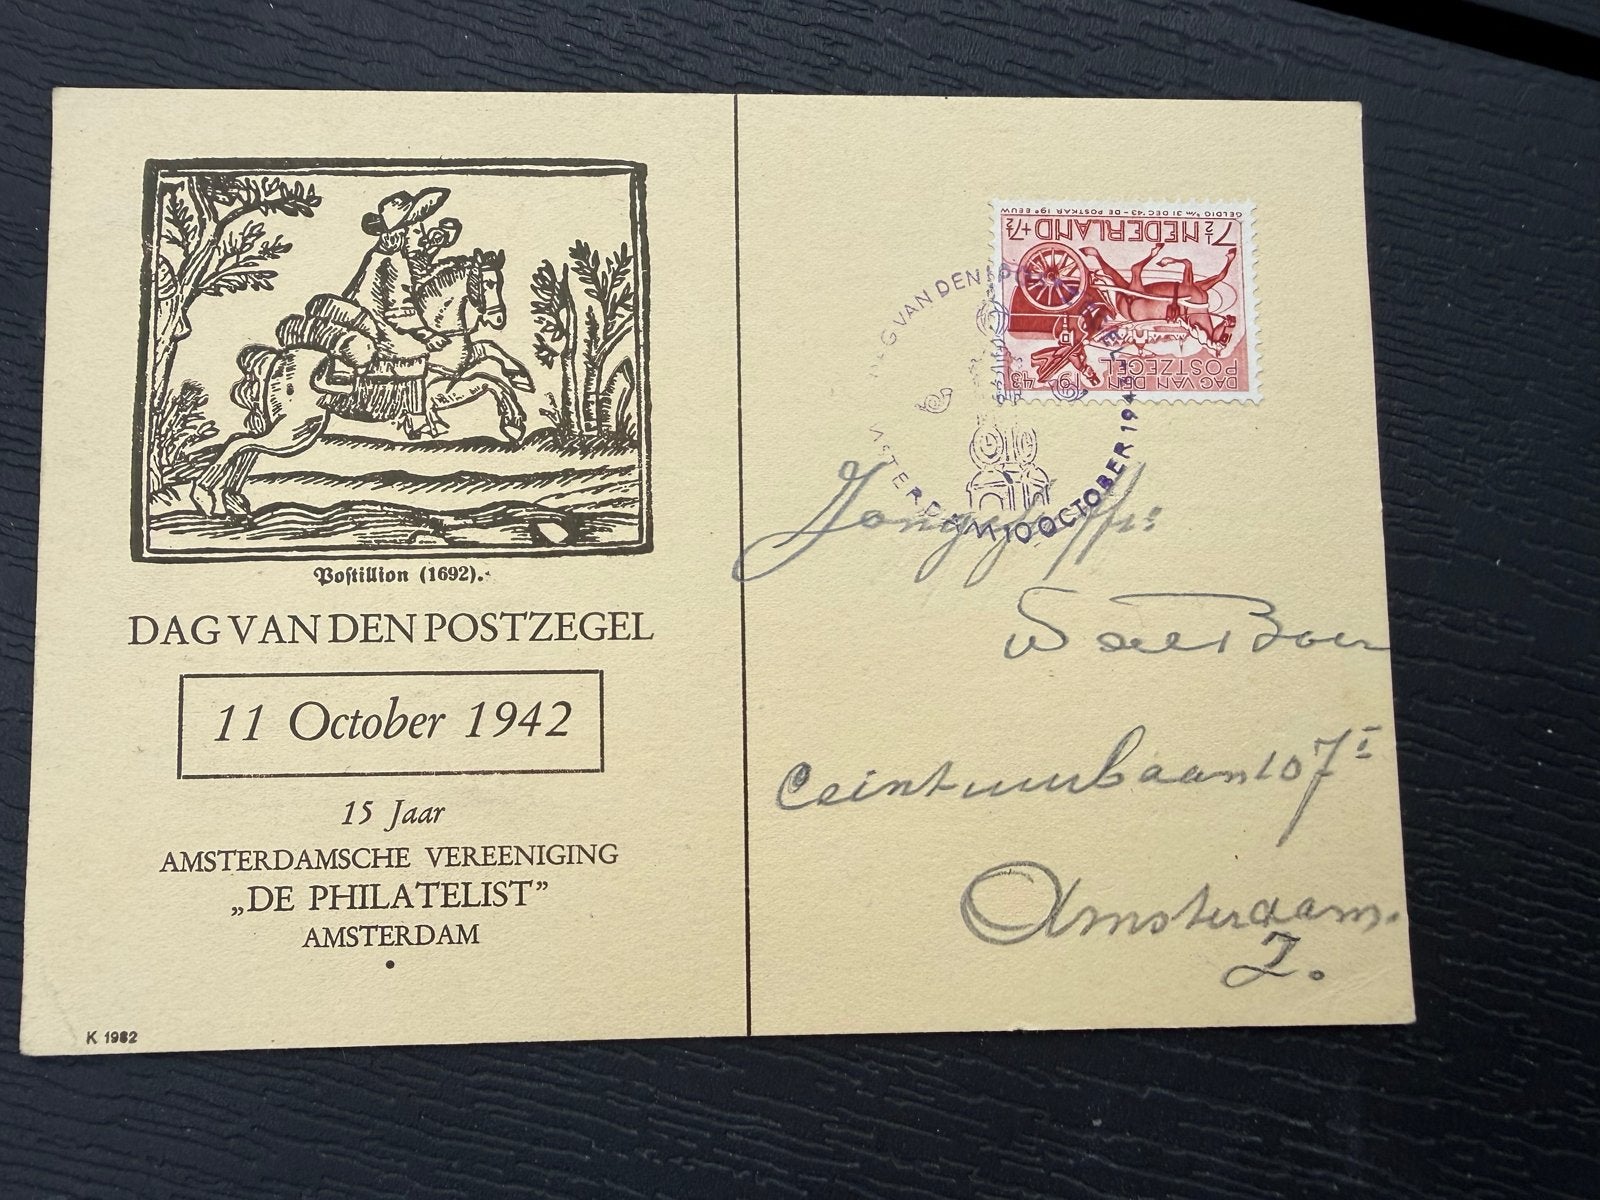 Postillion (1692).
DAG VAN DEN POSTZEGEL
11 October 1942
15 Jaar
AMSTERDAMSCHE VEREENIGING
„DE PHILATELIST”
AMSTERDAM
K 1982
GELDIG t/m 31 DEC. '43 - DE POSTKAR 19e EEUW
7½ NEDERLAND +7½
DAG VAN DEN
POSTZEGEL
19 43
DAG VAN DEN POSTZEGEL
AMSTERDAM 10 OCTOBER 194
Ceintuurbaan 107 I
Amsterdam.
Z.